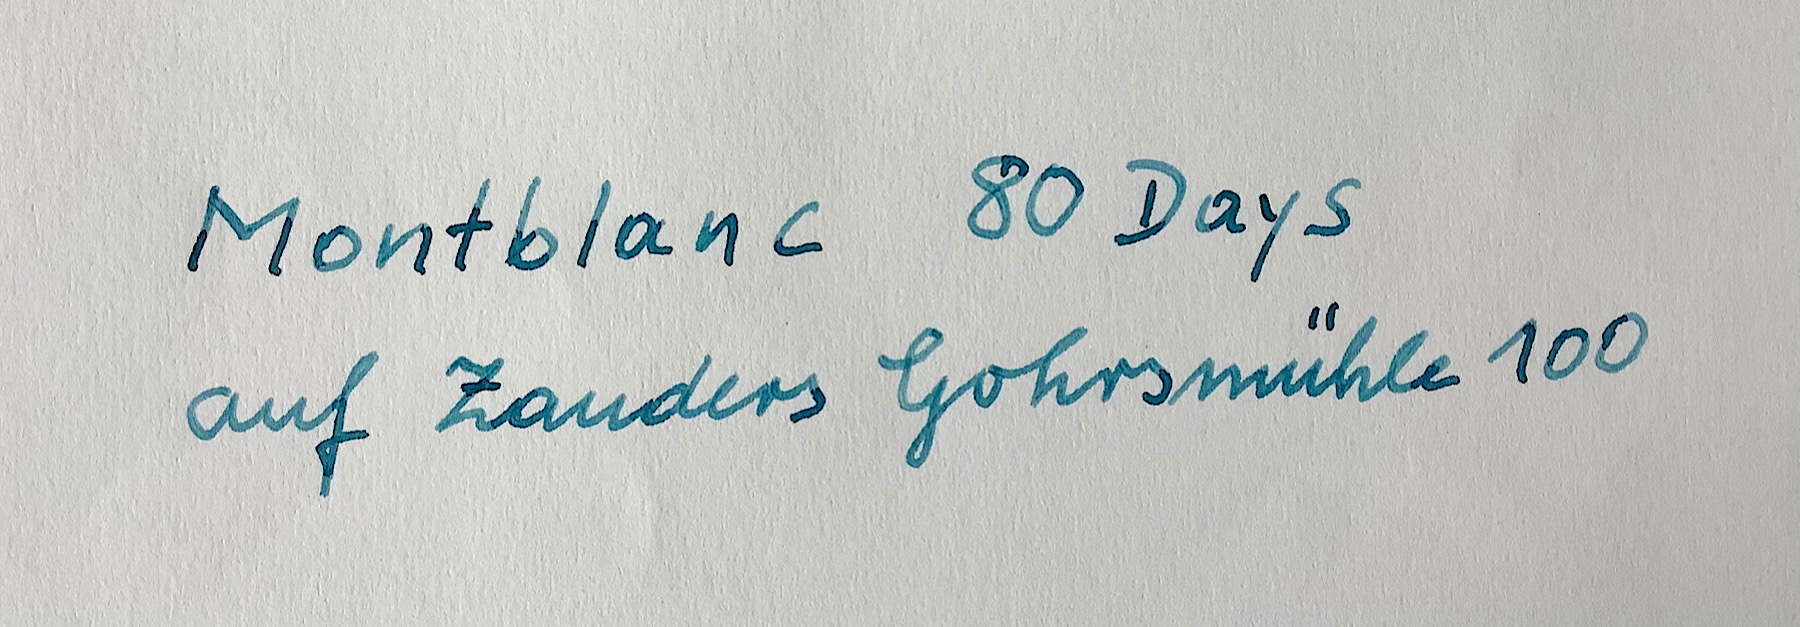 Montblanc 80 Days
auf Zanders Gohrsmühle 100